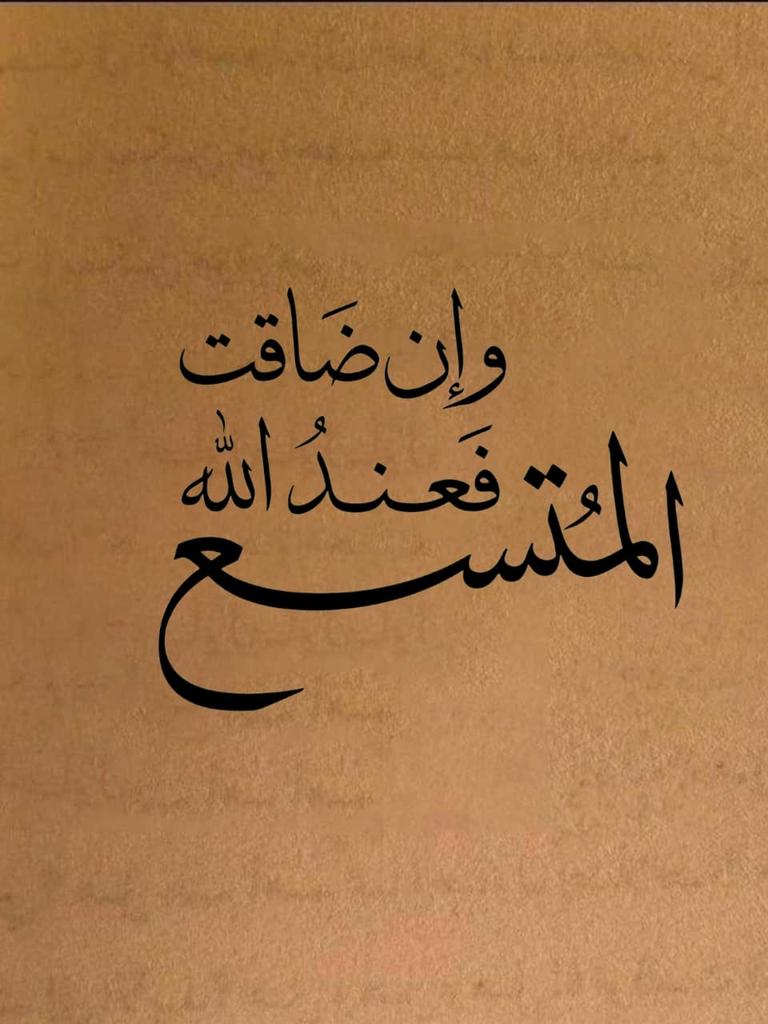 وإن ضَاقت
فَعندُ الله
المُتسع